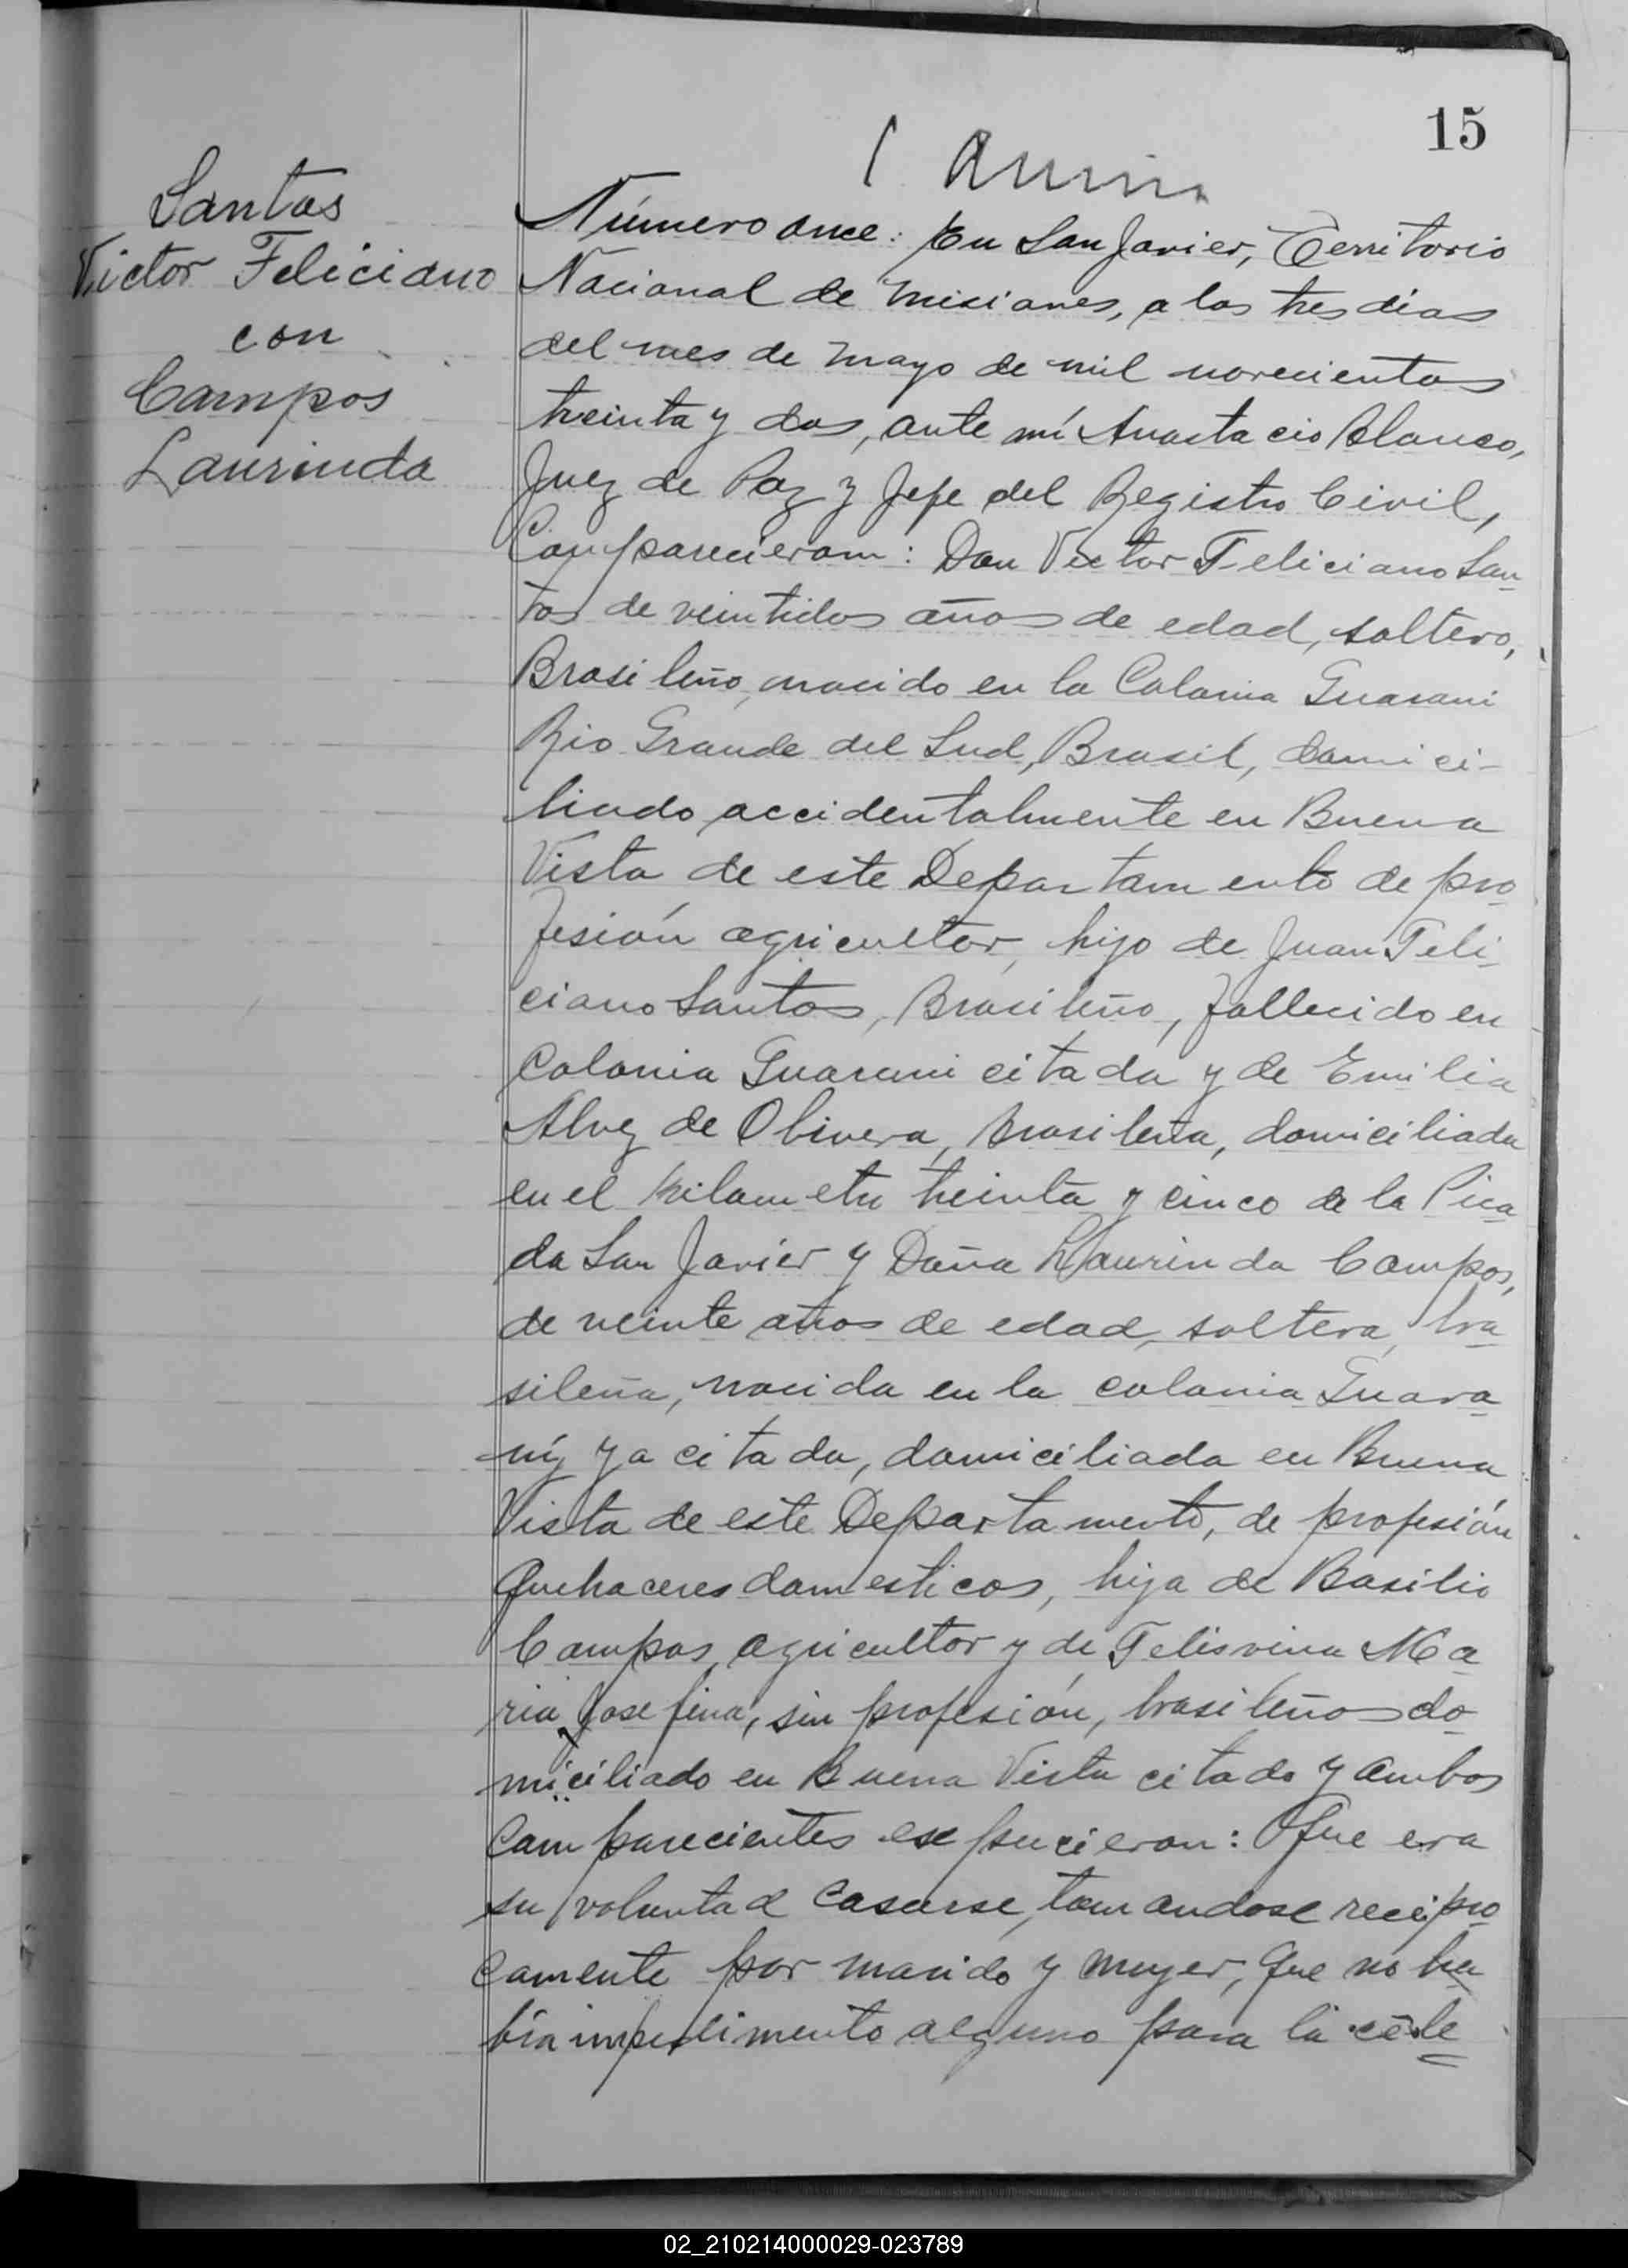 15
Santos
Victor Feliciano
con
Campos
Laurinda
Número once: En San Javier, Territorio
Nacional de Misiones, a los tres dias
del mes de Mayo de mil novecientos
treinta y dos, ante mí Anastacio Blanco,
Juez de Paz y Jefe del Registro Civil,
Comparecieron: Don Victor Feliciano San
tos de veintidos años de edad, soltero,
Brasileño, nacido en la Colonia Guarani
Rio Grande del Sud, Brasil, domici-
liado accidentalmente en Buena
Vista de este Departamento de pro
fesión agricultor, hijo de Juan Feli
ciano Santos, Brasileño, fallecido en
Colonia Guarani citada y de Emilia
Alvez de Olivera, Brasileña, domiciliada
en el kilometro treinta y cinco de la Pica
da San Javier y Doña Laurinda Campos,
de veinte años de edad, soltera, bra
sileña, nacida en la colonia Guara
ní, ya citada, domiciliada en Buena
Vista de este Departamento, de profesión
Quehaceres domesticos, hija de Basilio
Campos, agricultor y de Felisvina Ma
ria Josefina, sin profesión, brasileños do
miciliado en Buena Vista citado y ambos
Comparecientes expucieron: Que era
su voluntad casarse, tomandose recipro
camente por marido y muyer, que no ha
bía impedimento alguno para la cele
02_210214000029-023789